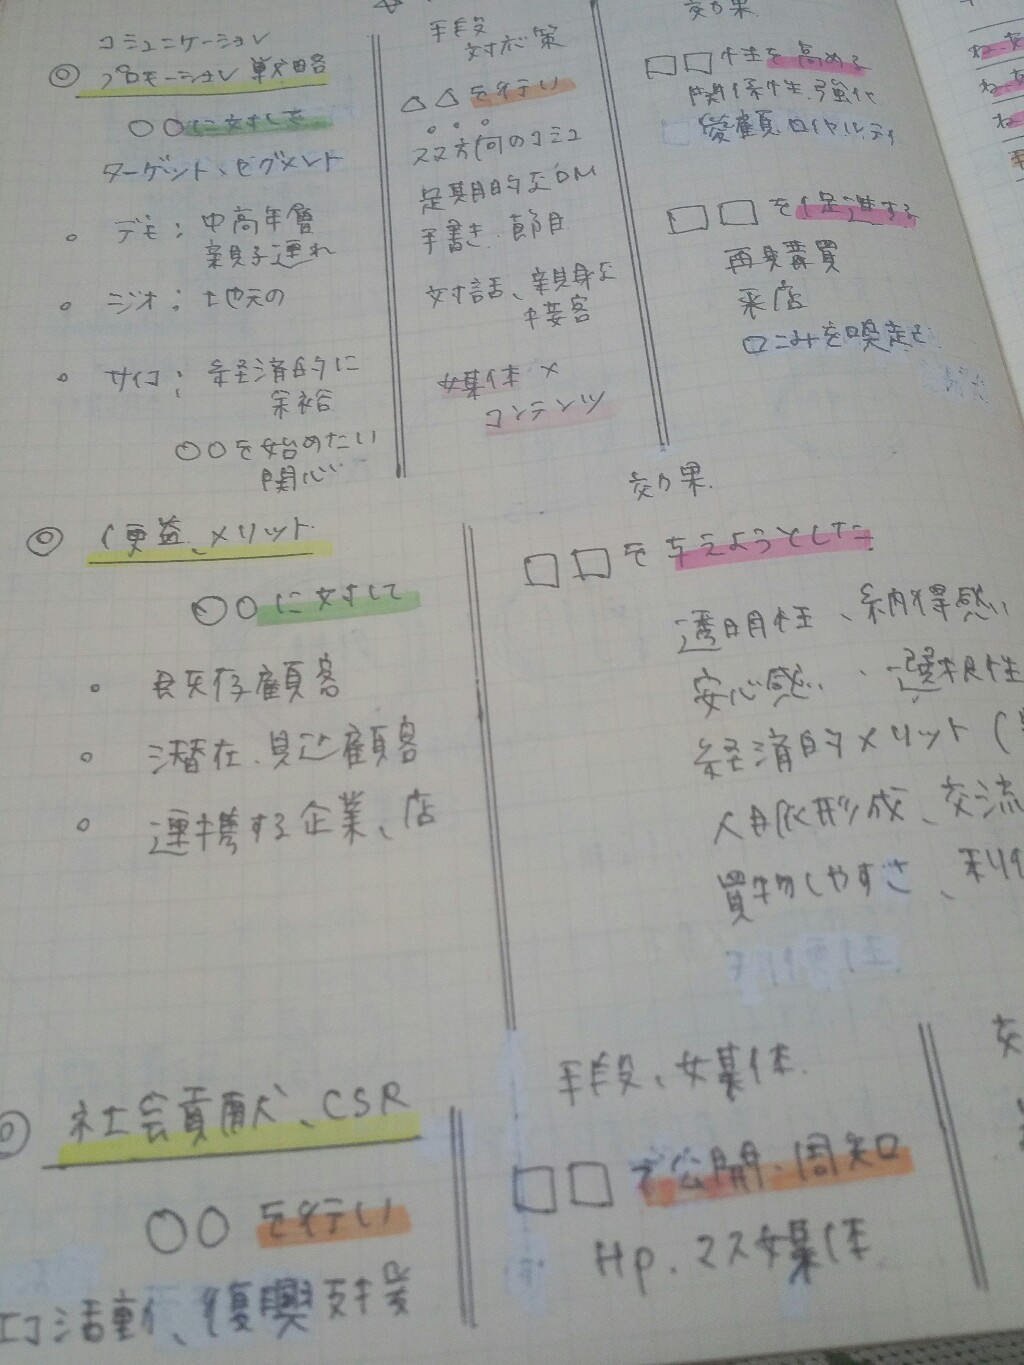 コミュニケーション
◎ プロモーション戦略
○○に対して
ターゲット、セグメント
。デモ; 中高年層
親子連れ
。ジオ; 地元の
。サイコ; 経済的に
余裕
○○を始めたい
関心
手段
対応策
△△を行い
双方向のコミュ
定期的なDM
手書き、節目
対話、親身な
接客
媒体×
コンテンツ
効果
□□性を高める
関係性強化
愛顧、ロイヤルティ
□□を促進する
再購買
来店
口こみを喚起せ
◎ 便益、メリット
○○に対して
。既存顧客
。潜在、見込顧客
。連携する企業、店
効果
□□を与えようとした
透明性、納得感
安心感、選択性
経済的メリット(
人脈形成、交流
買物しやすさ、利便
利便性
◎ 社会貢献、CSR
○○を行い
エコ活動、復興支援
手段、媒体
□□で公開、周知
Hp、マス媒体